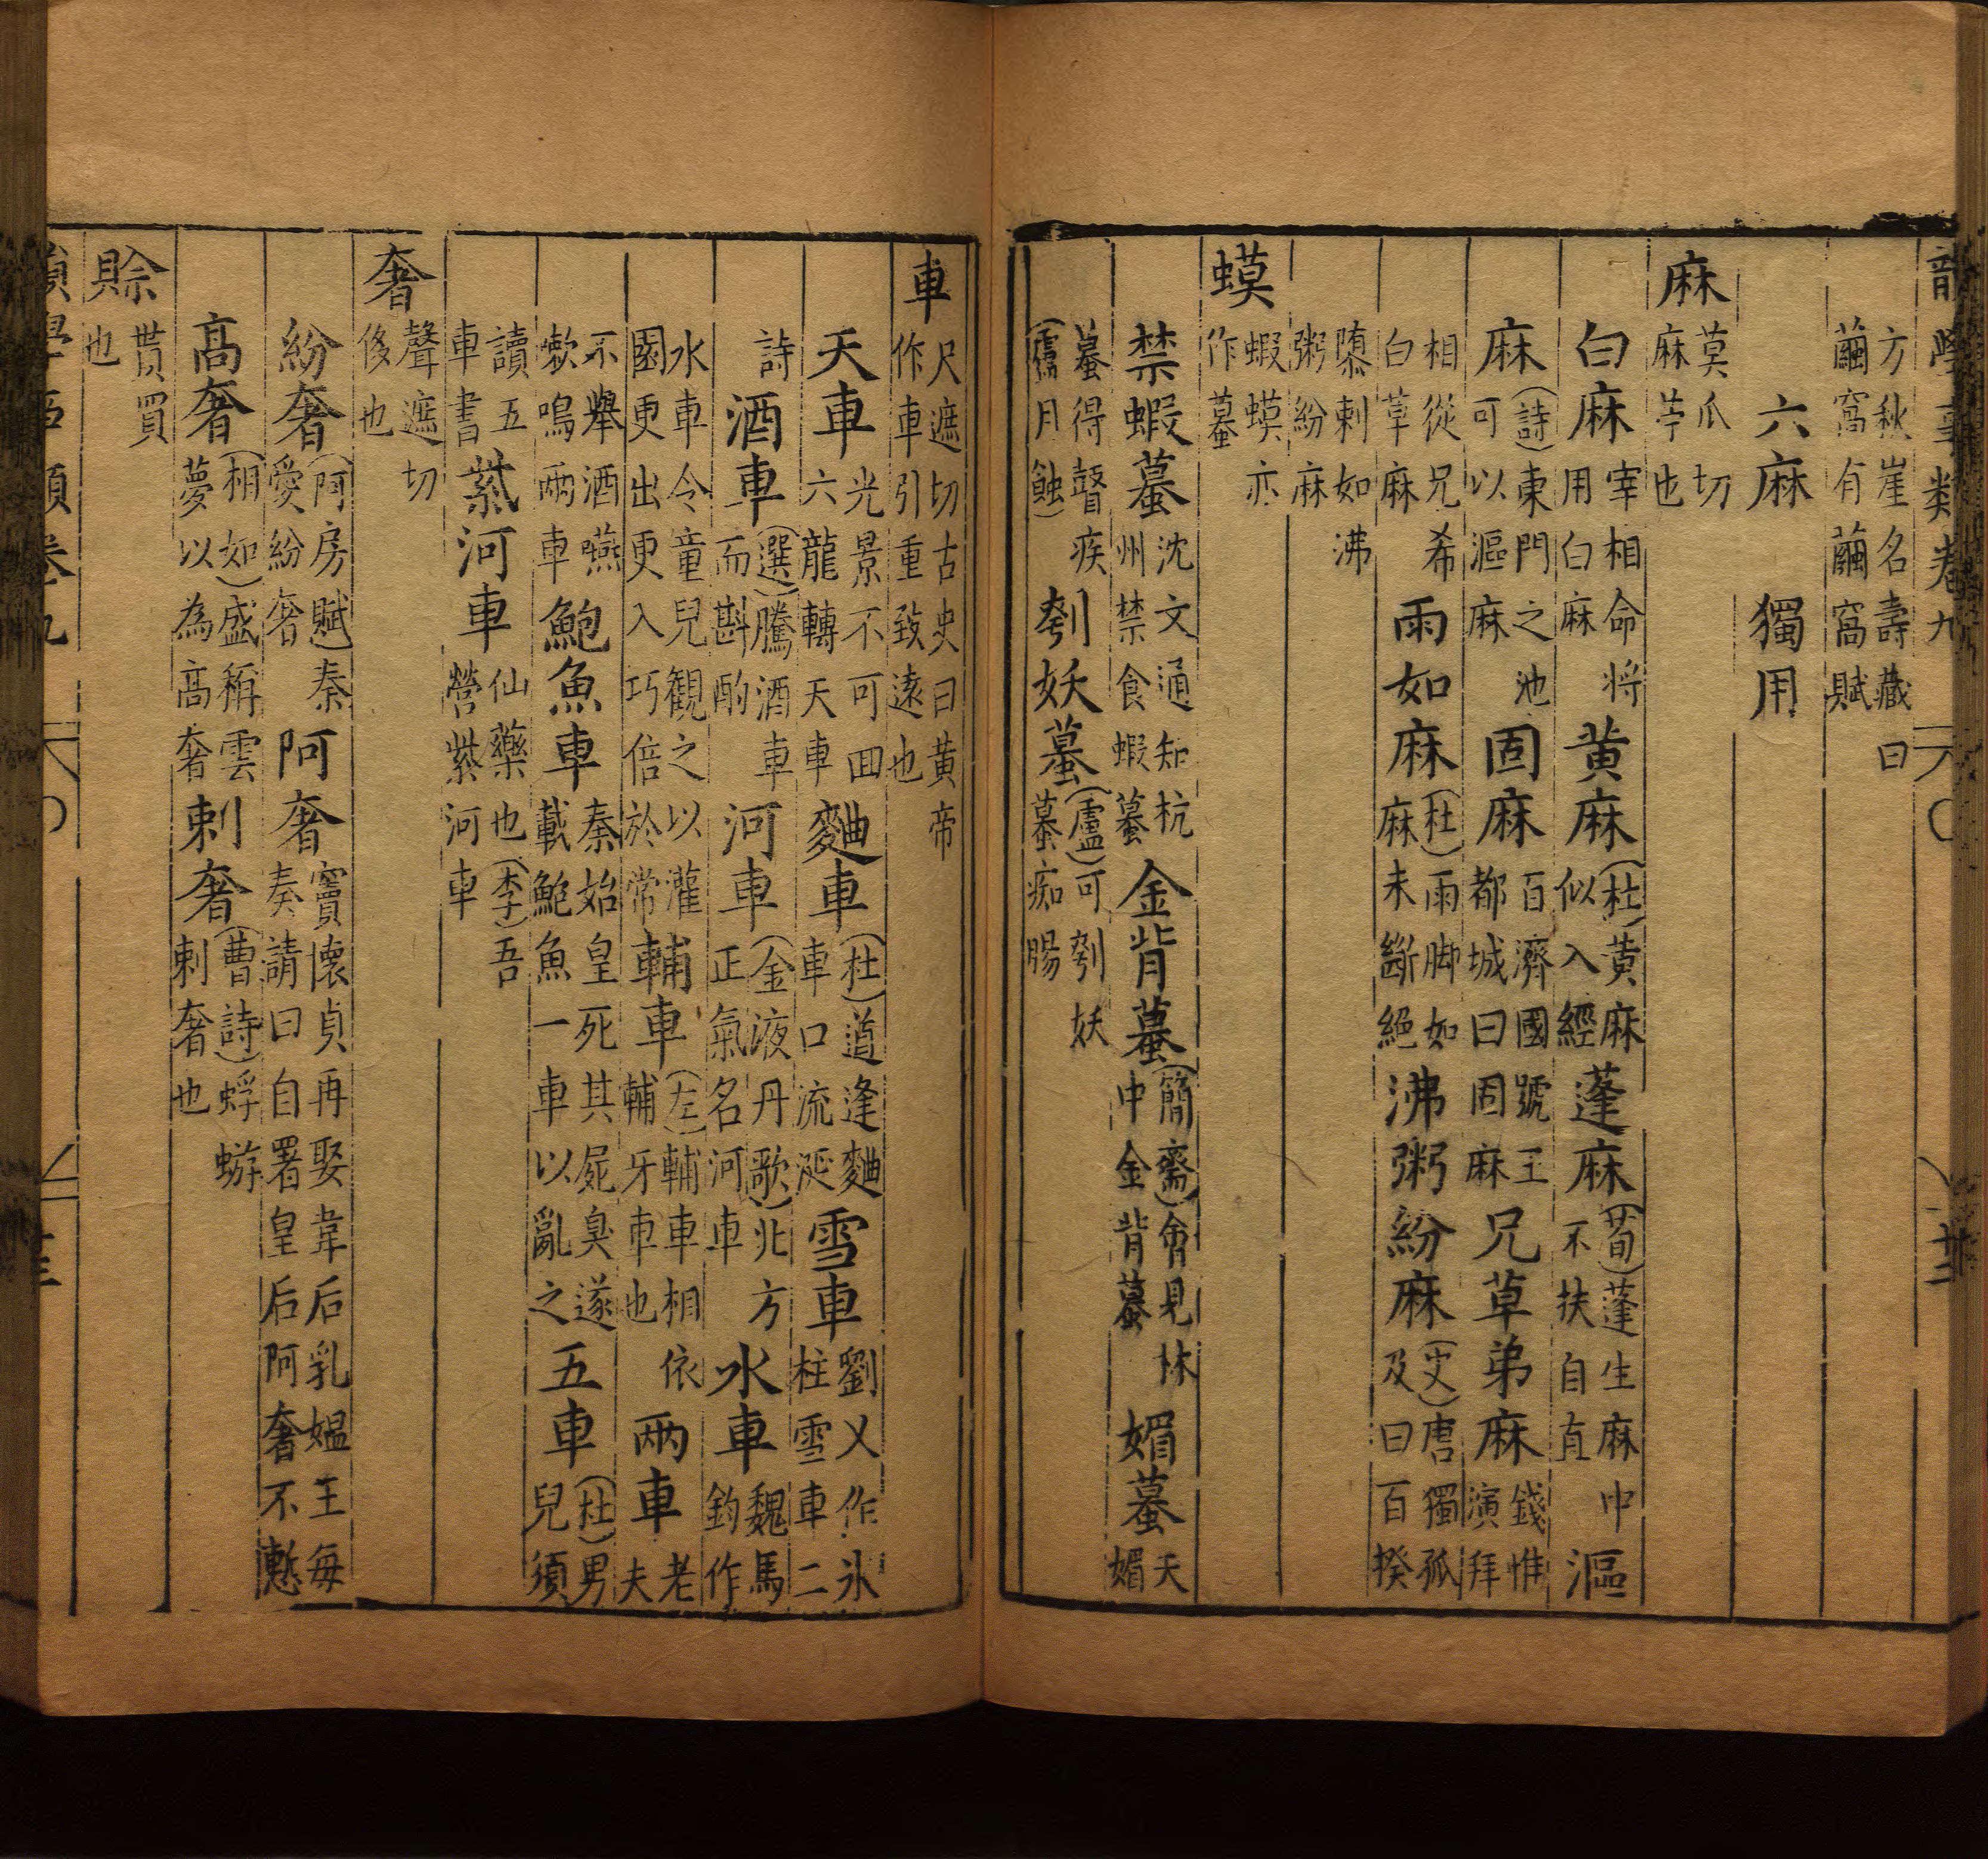 方秋崖名壽藏曰
繭窩有繭窩賦
六麻 獨用
麻 莫瓜切麻苧也
白麻 宰相命将用白麻 黄麻 (杜)黄麻似入經 蓬麻 (荀)蓬生麻中不扶自直 漚
麻 (詩)東門之池可以漚麻 固麻 百濟國號王都城曰固麻 兄草弟麻 錢惟演拜
相從兄希白草麻 雨如麻 (杜)雨脚如麻未斷絕 沸粥紛麻 (史)唐獨孤及曰百揆
隳剌如沸粥紛麻
蟆 蝦蟆亦作蟇
禁蝦蟇 沈文通知杭州禁食蝦蟇 金背蟇 (簡齋)會見林中金背蟇 媚蟇 天媚
蟇得瞽疾 刳妖蟇 (盧)可刳妖蟇痴腸(盧月蝕)
車 尺遮切古史曰黃帝作車引重致遠也
天車 光景不可回六龍轉天車 麯車 (杜)道逢麯車口流涎 雪車 劉乂作氷柱雪車二
詩 酒車 (選)騰酒車而斟酌 河車 (金液丹歌)北方正氣名河車 水車 魏馬鈞作
水車令童兒觀之以灌園更出更入巧倍於常 輔車 (左)輔車相依輔牙車也 兩車 老夫
不舉酒嚥嗽嗚兩車 鮑魚車 秦始皇死其屍臭遂載鮑魚一車以亂之 五車 (杜)男兒須
讀五車書 紫河車 仙藥也(李)吾營紫河車
奢 聲遮切侈也
紛奢 (阿房賦)秦愛紛奢 阿奢 竇懐貞再娶韋后乳媼王每奏請曰自署皇后阿奢不慙
高奢 (相如)盛稱雲夢以為高奢 剌奢 (曹詩)蜉蝣剌奢也
賖 貰買也